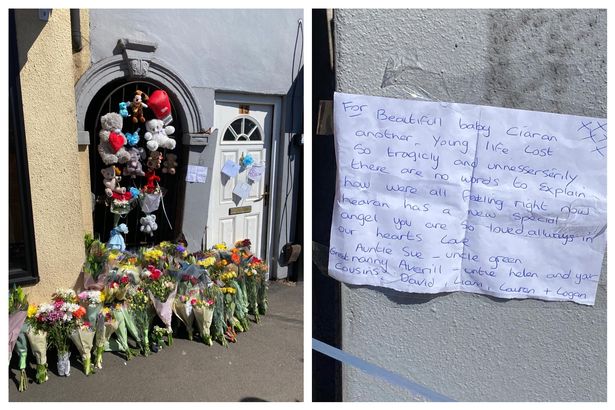 For Beautifull baby Ciaran
another, Young life Lost
So tragicly and unnesserserily
there are no words to Explain
how were all feeling right now
heaven has a new special
angel you are so loved allways in
our hearts Love
Auntie Sue - uncle green
Great nanny Averill - untie helen and your
Cousins - David, Liam, Lauren + Logan